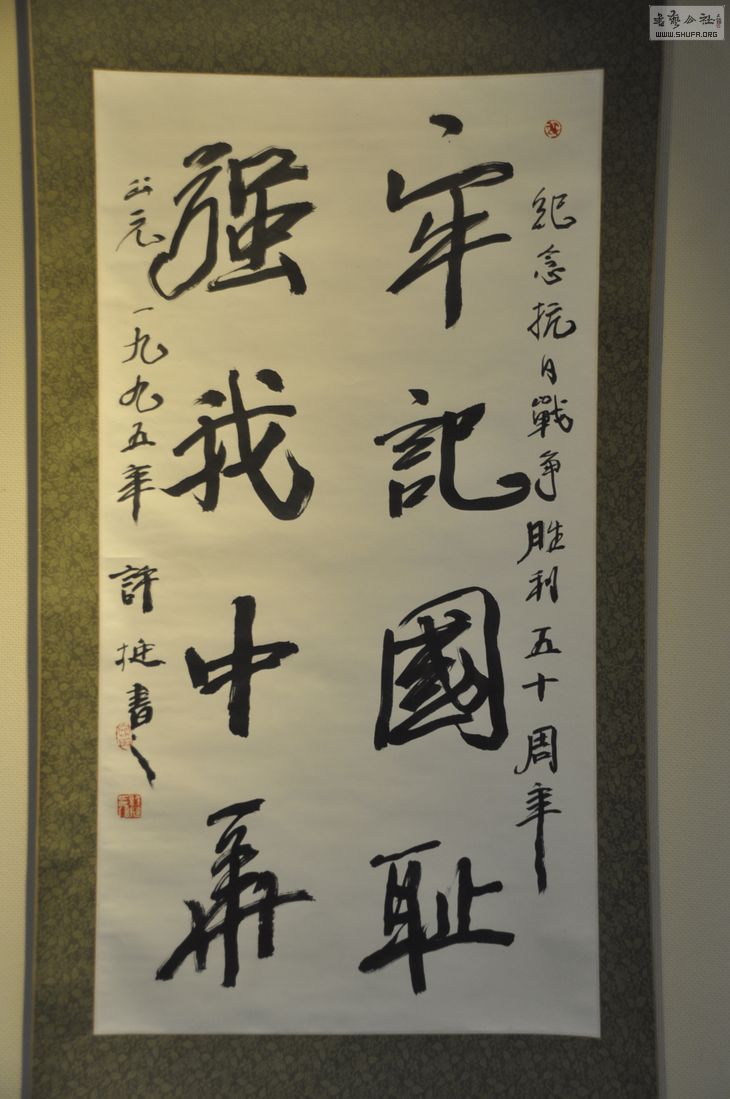 纪念抗日戰争胜利五十周年
牢記國耻
强我中華
公元一九九五年 許挻書
書藝公社
WWW.SHUFA.ORG